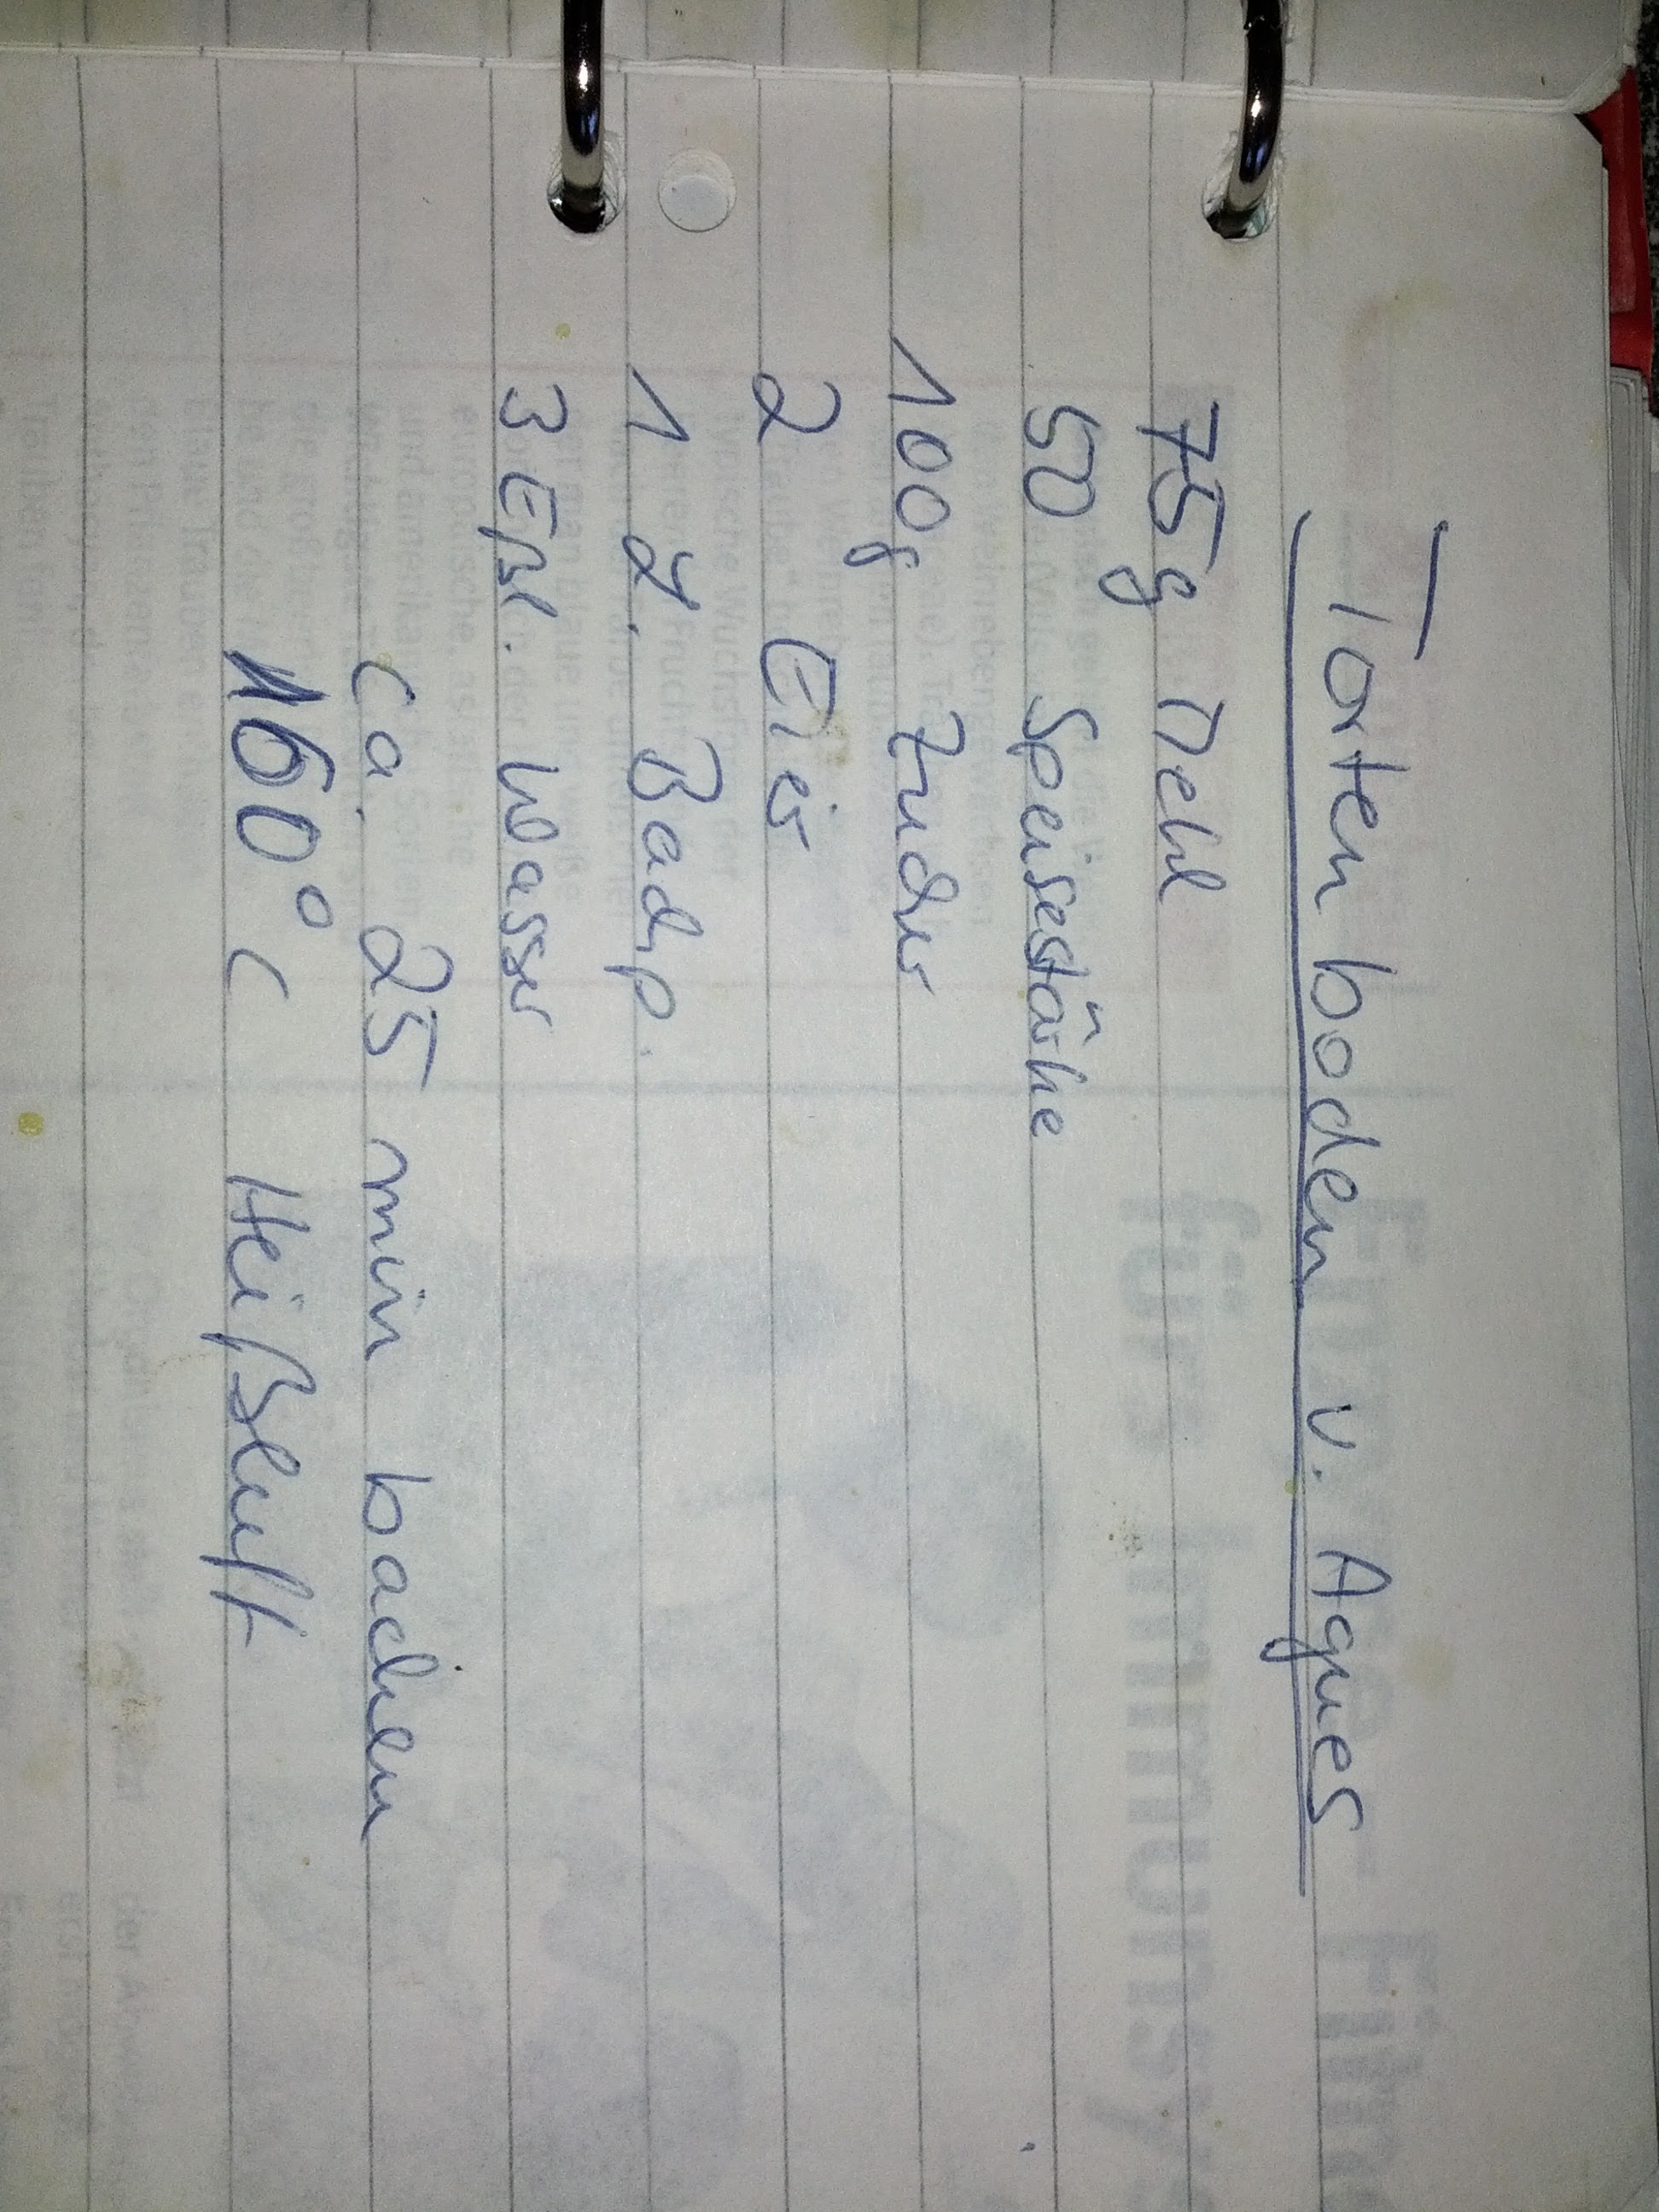 Tortenboden v. Agnes
75g Mehl
50 Speisestärke
100g Zucker
2 Eier
1 Backp.
3 Eßl. Wasser
ca. 25 min backen
160° C Heißluft